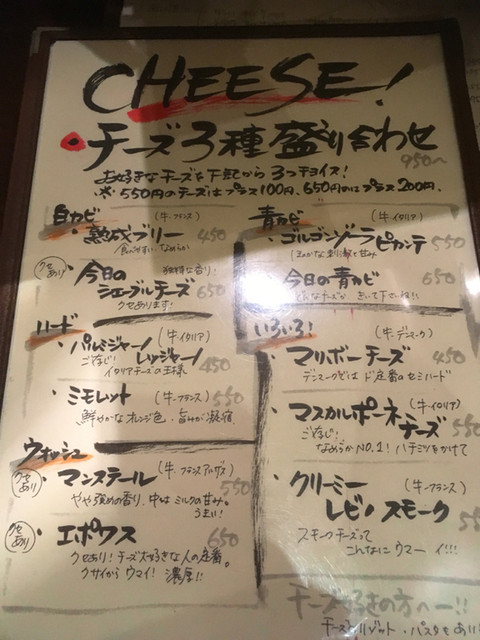 CHEESE!
・チーズ3種盛り合わせ
950〜
お好きなチーズを下記から3つチョイス!
※550円のチーズはプラス100円、650円のはプラス200円。
白カビ (牛-フランス)
・熟成ブリー 450
食べやすい、なめらか
クセあり ・今日の 独特な香り!
シェーブルチーズ 650
クセあります!
ハード (牛-イタリア)
・パルミジャーノ
ご存じ! レッジャーノ 450
イタリアチーズの王様
・ミモレット (牛-フランス) 550
鮮やかなオレンジ色・旨みが凝縮
ウォッシュ
クセあり ・マンステール (牛-フランスアルザス) 550
やや強めの香り、中はミルクの甘み。
うまい!
クセあり ・エポワス 650
クセあり!チーズ大好きな人の定番。
クサイから ウマイ! 濃厚!!
青カビ (牛-イタリア)
・ゴルゴンゾーラ ピカンテ 550
ほのかな刺激と甘み
・今日の青カビ 650
きいて下さいね!!
いろいろ! (牛-デンマーク)
・マリボーチーズ 450
デンマークでは ド定番のセミハード
・マスカルポーネ (牛イタリア)
ご存じ! チーズ 550
なめらかNO.1! ハチミツをかけて
・クリーミー (牛-フランス)
レビノ スモーク
スモークチーズって
こんなにウマーイ!!!
チーズ好きの方へー!!
チーズリゾット・パスタもあい